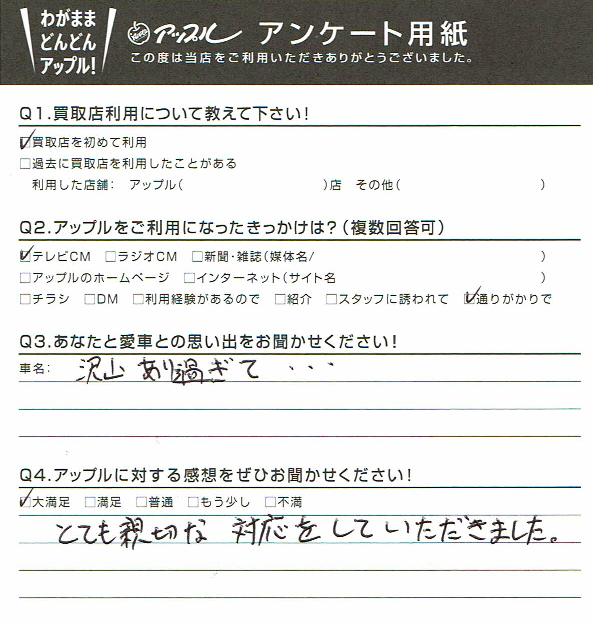 わがまま
どんどん
アップル!
アップル アンケート用紙
この度は当店をご利用いただきありがとうございました。
Q1.買取店利用について教えて下さい!
☑買取店を初めて利用
□過去に買取店を利用したことがある
利用した店舗: アップル( )店 その他( )
Q2.アップルをご利用になったきっかけは?(複数回答可)
☑テレビCM □ラジオCM □新聞・雑誌(媒体名/ )
□アップルのホームページ □インターネット(サイト名 )
□チラシ □DM □利用経験があるので □紹介 □スタッフに誘われて ☑通りがかりで
Q3.あなたと愛車との思い出をお聞かせください!
車名: 沢山あり過ぎて・・・
Q4.アップルに対する感想をぜひお聞かせください!
☑大満足 □満足 □普通 □もう少し □不満
とても親切な対応をしていただきました。